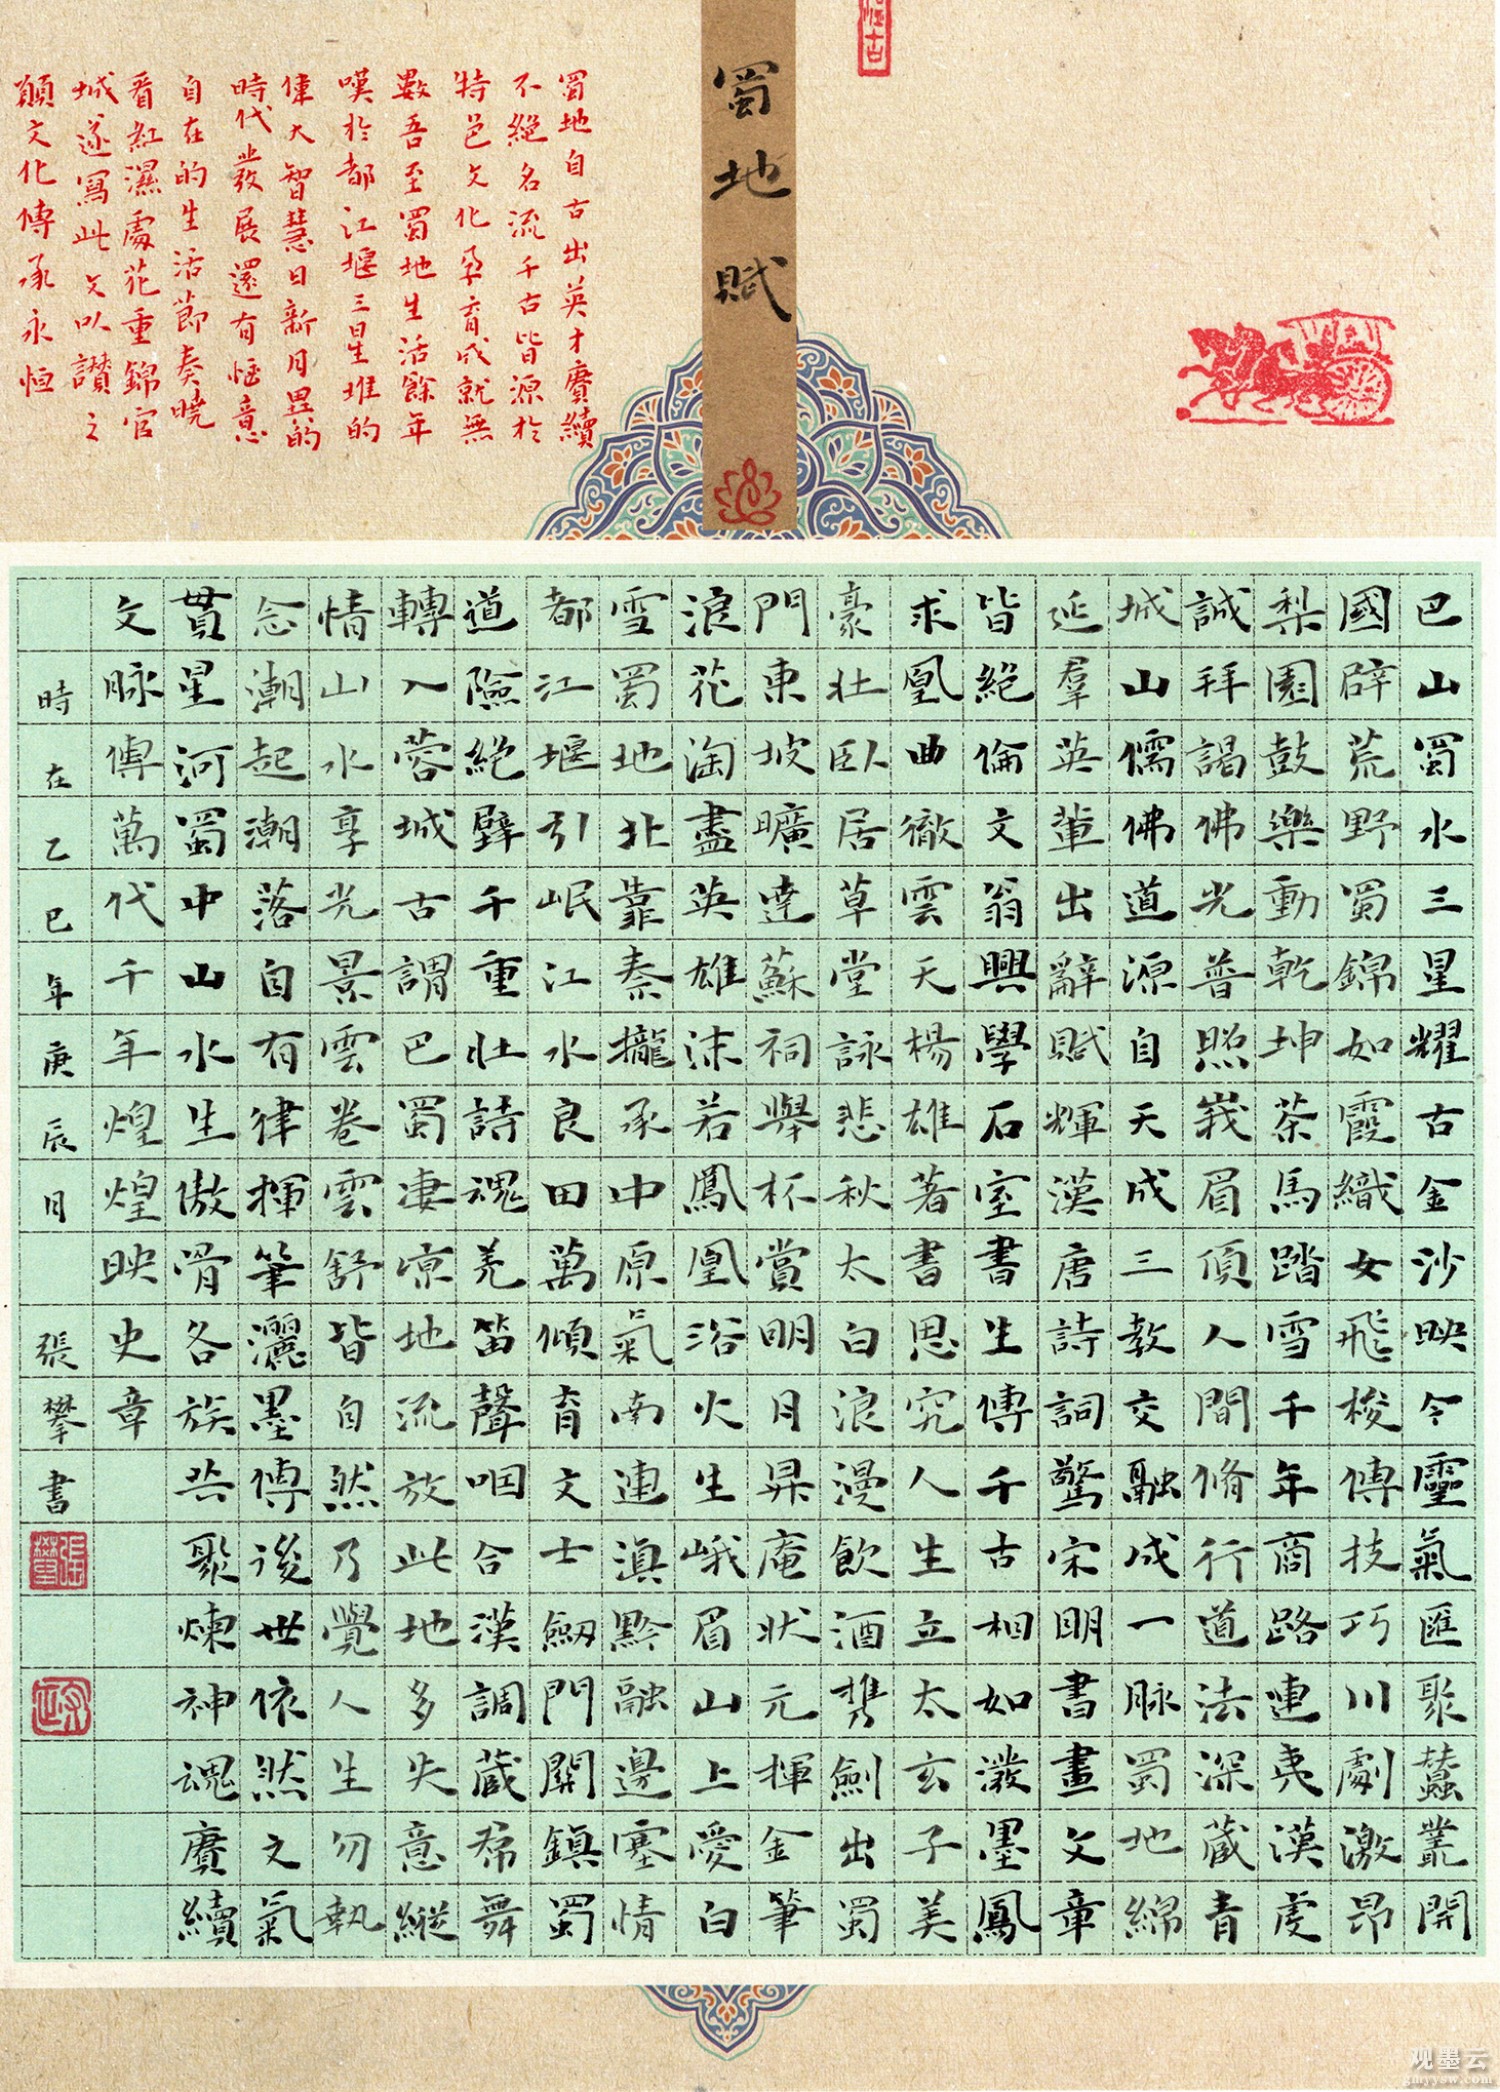 臨古
蜀地賦
蜀地自古出英才賡續
不絕名流千古皆源於
特邑文化孕育成就無
數吾至蜀地生活餘年
嘆於都江堰三星堆的
偉大智慧日新月異的
時代發展還有恒意
自在的生活節奏曉
看紅濕處花重錦官
城遂寫此文以讃之
願文化傳承永恒
巴山蜀水三星耀古金沙映今靈氣匯聚蠶叢開
國辟荒野蜀錦如霞織女飛梭傳技巧川劇激昂
梨園鼓樂動乾坤茶馬踏雪千年商路連夷漢虔
誠拜謁佛光普照峩眉頂人間脩行道法深藏青
城山儒佛道源自天成三教交融成一脉蜀地綿
延羣英輩出辭賦輝漢唐詩詞驚宋明書畫文章
皆絕倫文翁興學石室書生傳千古相如潑墨鳳
求凰曲徹雲天楊雄著書思究人生立太玄子美
豪壯臥居草堂詠悲秋太白浪漫飲酒攜劍出蜀
門東坡曠達蘇祠舉杯賞明月昇庵狀元揮金筆
浪花淘盡英雄沫若鳳凰浴火生峨眉山上愛白
雪蜀地北靠秦攏承中原氣南連滇黔融邊塞情
都江堰引岷江水良田萬傾育文士劔門關鎮蜀
道險絕壁千重壯詩魂羌笛聲咽合漢調藏希舞
轉入蓉城古謂巴蜀凄凉地流放此地多失意縱
情山水享光景雲卷雲舒皆自然乃覺人生勿執
念潮起潮落自有律揮筆灑墨傳後世依然之氣
貫星河蜀中山水生傲骨各族共聚煉神魂賡續
文脉傳萬代千年煌煌映史章
時在乙巳年庚辰月 張攀書
張攀
觀墨云
gmyysw.com